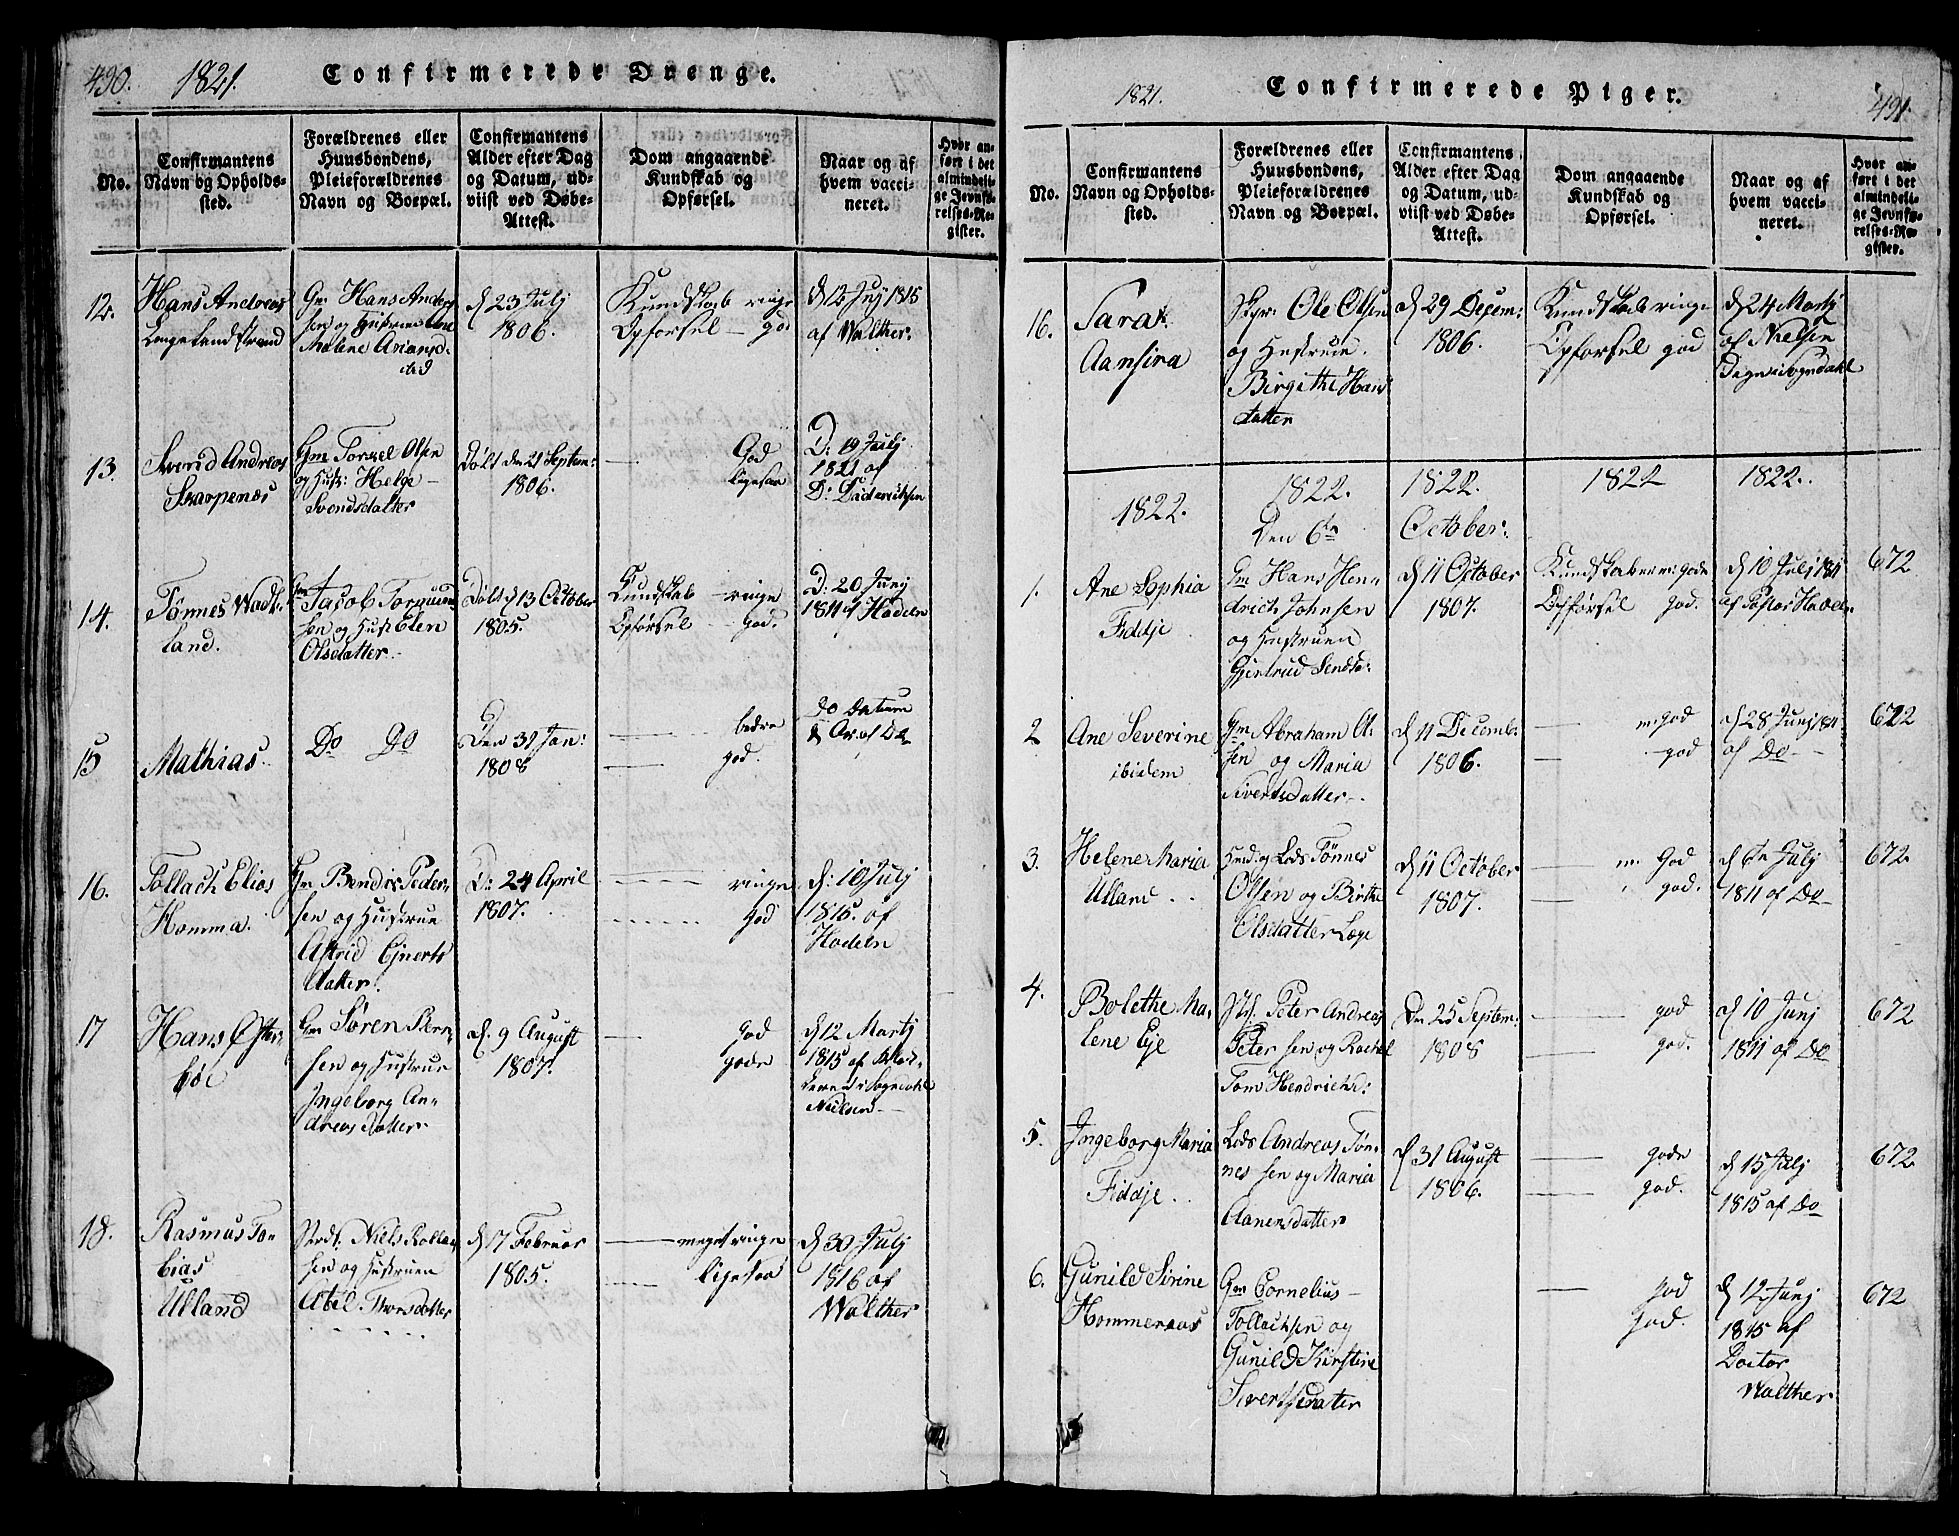 490. 1821. Confirmerede Drenge.
No.
Confirmantens
Navn og Opholds-
sted.
Forældrenes eller
Huusbondens,
Pleieforældrenes
Navn og Boepæl.
Confirmantens
Alder efter Dag
og Datum, ud-
viist ved Døbe-
Attest.
Dom angaaende
Kundskab og
Opførsel.
Naar og af
hvem vacci-
neret.
Hvor an-
ført i det
almindeli-
ge Jevnfø-
relses-Re-
gister.
12.
Hans Andreas
Langelandstrand
Gm Hans Anders
sen og Hustrue
Malene
d 23 Julj
1806.
Kundskab ringe
Opførsel - god
d 12 Julj 1815
af Walther.
13.
Svend Andreas
Skarpenæs
Gm Torkel Olsen
og Hust: Helge
Svendsdatter
Døbt den 21 Septem:
1806.
God
ligesaa
D: 19 Julj
1821 af
D: Diderichsen
14.
Tønnes Wads-
land.
Gm Jacob
sen og Hust Elen
Olsdatter
Døbt d 13 October
1805.
Kundskab - ringe
Opførsel - god.
D: 20 Junj
1811 af Hadeln
15
Mathias.
Do Do
Den 31 Jan:
1808
bedre
god.
Do Datum
& Ar af Do
16.
Tollach Elias
Homma.
Gm Bendix Peder-
sen og Hustrue
Astrid Ejverts
datter.
D: 24 April
1807.
ringe
god
d: 10 Julj
1815. af
Hadeln
17
Hans Øster-
bøe
Gm Søren Bern-
sen og Hustrue
Ingeborg An-
dreas datter
d. 9 August
1807.
god
gode
d 12 Martj
1815 af
i Sognedahl
Nielsen
18.
Rasmus To-
bias
Ulland
Niels
sen og Hustruen
Abel Thorsdatter
d 17 Februar
1805.
meget ringe
ligesaa
d 30 Julj
1816 af
Walther
1821. Confirmerede Piger. 491.
No.
Confirmantens
Navn og Opholds-
sted.
Forældrenes eller
Huusbondens,
Pleieforældrenes
Navn og Boepæl.
Confirmantens
Alder efter Dag
og Datum, ud-
viist ved Døbe-
Attest.
Dom angaaende
Kundskab og
Opførsel.
Naar og af
hvem vacci-
neret.
Hvor an-
ført i det
almindeli-
ge Jevnfø-
relses-Re-
gister.
16.
Sara
Aansira
Ole Olsen
og Hustrue.
Birgithe Hans
datter
d 29 Decem:
1806.
Kundskab ringe
Opførsel god
d 24 Martj
af Nielsen
Sogndahl
1822. 1822. 1822. 1822 1822.
Den 6te October:
1.
Ane Sophia
Fidje
Gm Hans Hen-
drich Johnsen
og Hustruen
Gjertrud
d 11 October
1807.
Kundskab m: gode
Opførsel god.
d 10 Julj 1811
af Pastor Hadeln
672
2
Ane Severine
ibidem
Gm Abraham Ol-
sen og Maria
Sivertsdatter
d 11 Decemb:
1806.
m: god
god
d 28 Junj 1811
af Do
672
3.
Helene Maria
Ulland
Lods Tønnes
Olsen og Birthe
Olsdatter Lage
d 11 October
1807.
m: God
god.
Julj
1811 af Do
672
4.
Bolethe Ma-
lene Eje
Peter Andreas
Peter sen og Rachel
Tom Hendrichsd:
Den 25 Septem:
1808
god
god.
d 10 Junj
1811 af Do
672
5.
Ingeborg Maria
Fidje
Lods Andreas Tøn-
nes sen og Maria
Aanensdatter
d 31 August
1806.
gode
god.
d 15 Julj
1815 af Do
672
6.
Gunild Sirine
Hommeraas
Gm Cornelius
Tollachsen og
Gunild Kirstine
Sivertsdatter
god
god.
d 12 Junj
1815 af
Doctor
Walther
672